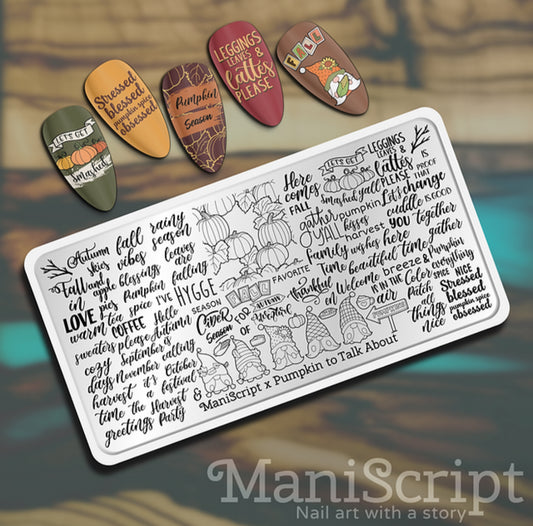 LET'S GET
smashed
Stressed
blessed
pumpkin spice
obsessed
Pumpkin
Season
LEGGINGS
LEAVES &
lattes
PLEASE
FALL
Autumn fall rainy
skies vibes season
Fall and blessings leaves
in apple are
LOVE pies Pumpkin falling
warm tea spice I'VE HYGGE
COFFEE Hello SEASON
sweaters please Autumn
cozy September is
days November calling
harvest it's October
time a festival
greetings the Harvest
& Party
Cider
Season FOR
OF
FALL
FAVORITE
Here
comes
FALL
LET'S GET
smashed y'all
LEGGINGS
LEAVES &
lattes
PLEASE
IS
THAT
PROOF
gather pumpkin Let's change
Y'ALL kisses cuddle IS GOOD
harvest YOU together
Family wishes here gather
Time beautiful time Pumpkin
thankful Welcome breeze & everything
in air IS IN THE Color SPICE NICE
Patch
all
things
nice
Stressed
blessed
pumpkin spice
obsessed
ManiScript x Pumpkin to Talk About
ManiScript
Nail art with a story